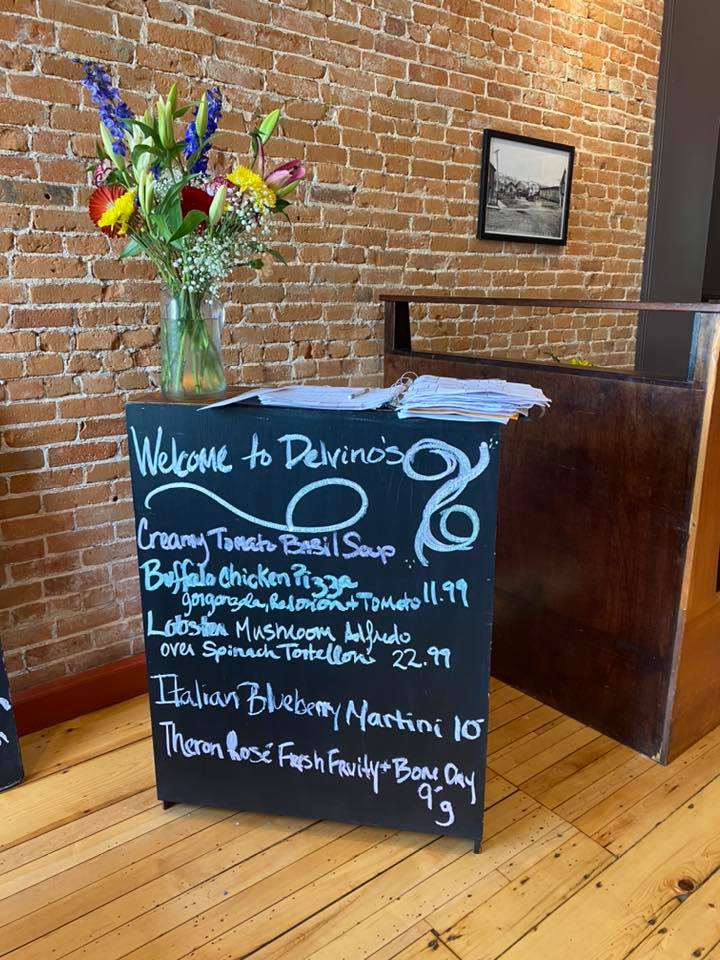 Welcome to Delvino's
Creamy Tomato Basil Soup
Buffalo Chicken Pizza
gorgonzola, Red onion + Tomato 11.99
Lobster Mushroom Alfredo
over Spinach Tortelloni 22.99
Italian Blueberry Martini 10
Theron Rosé Fresh Fruity + Bone Dry
9 g